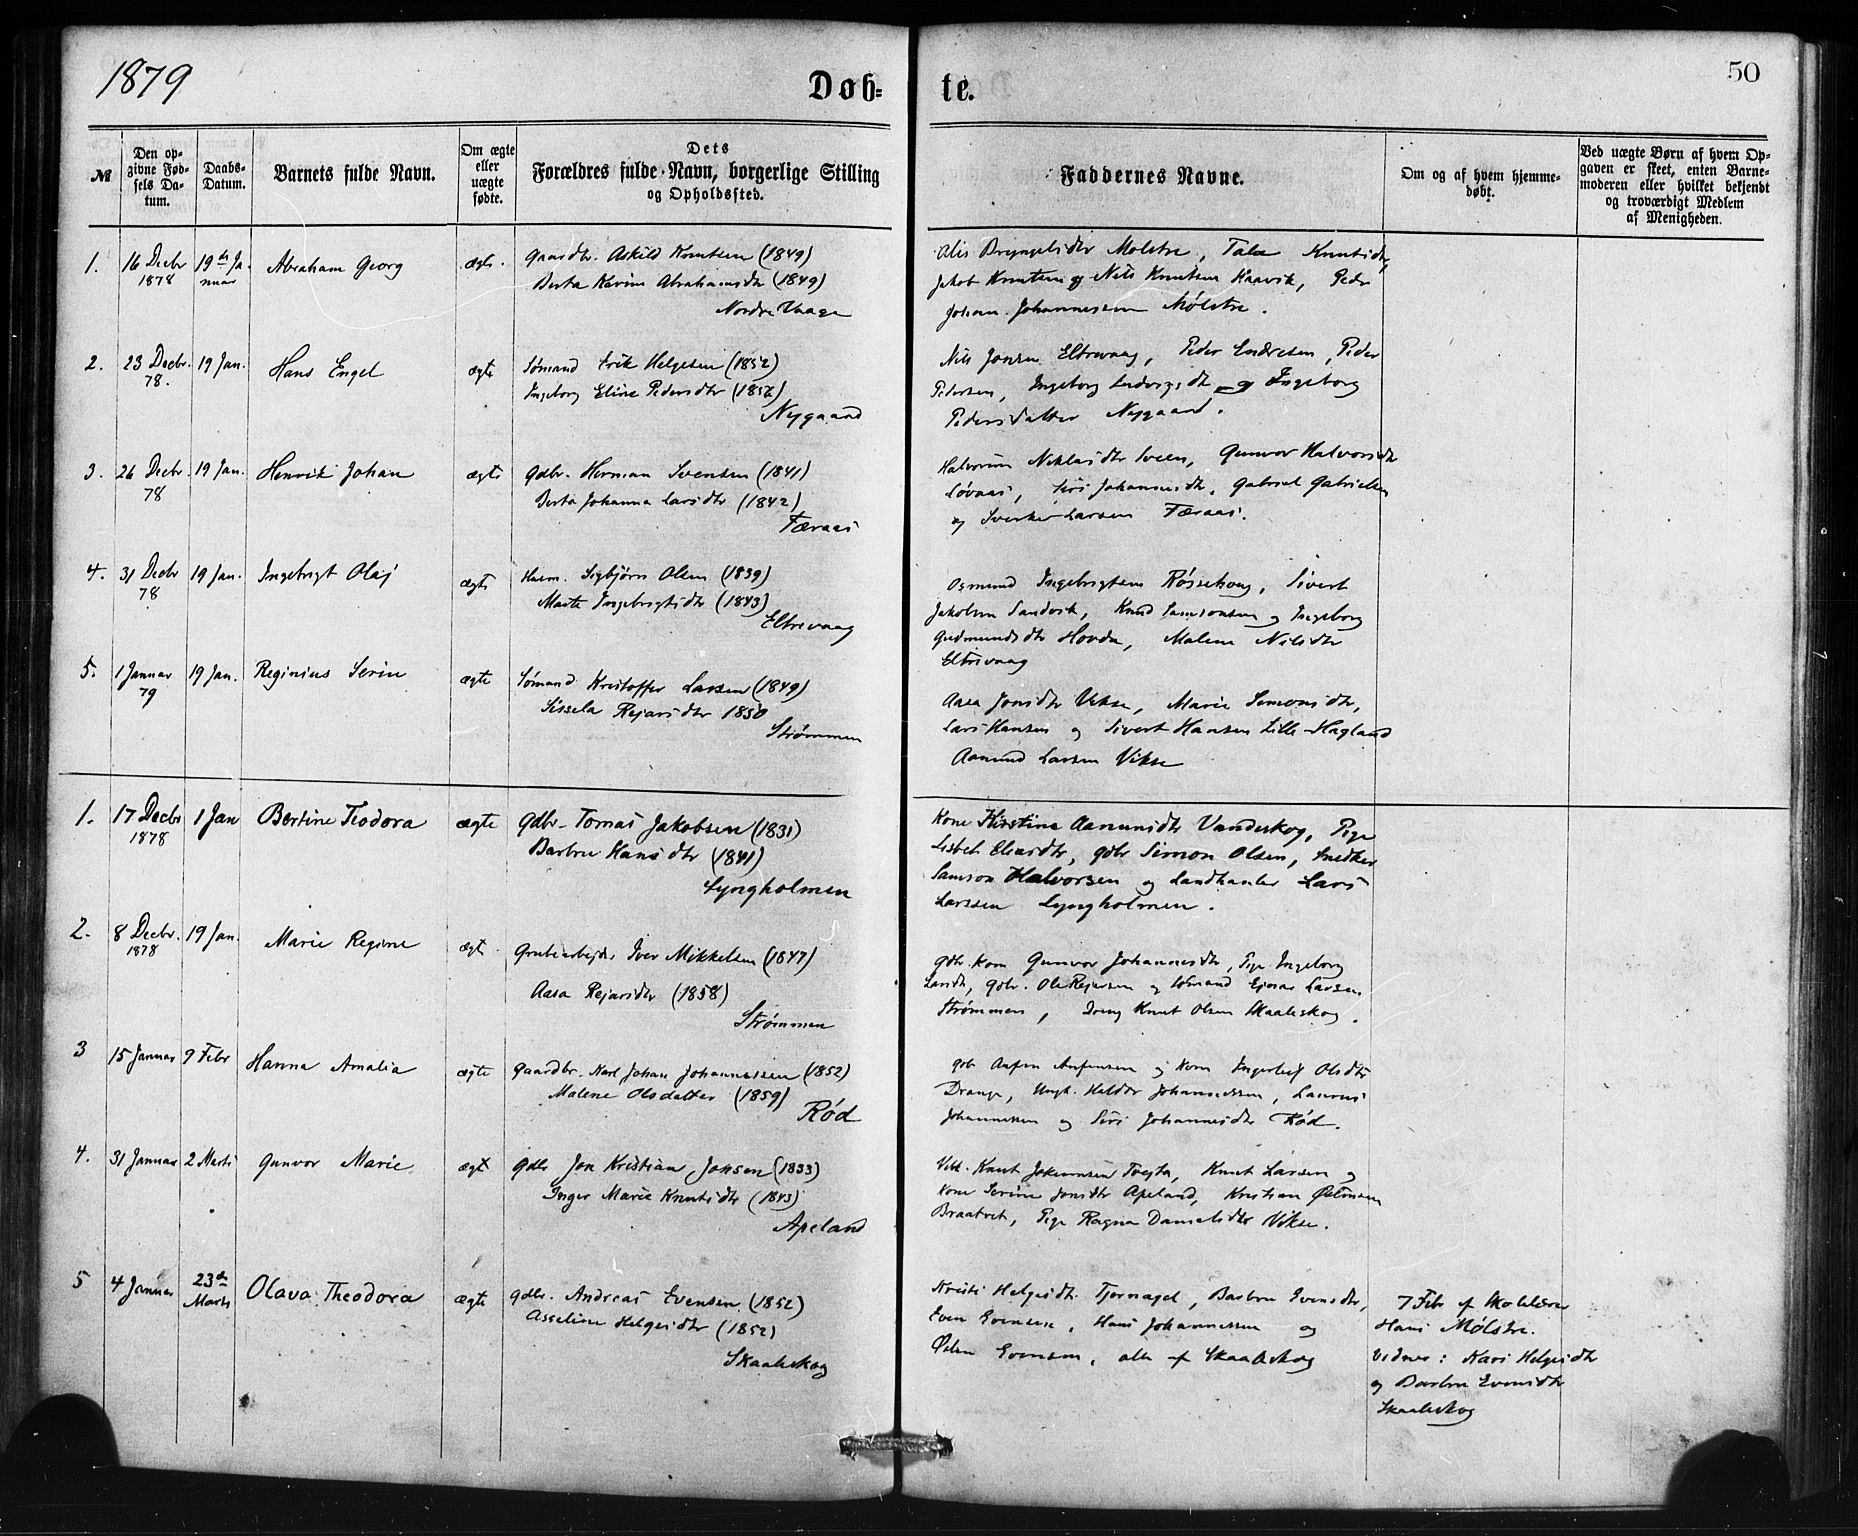 1879
Døb-
te.
50
№
Den opgivne Fødsels Datum.
Daabs-Datum.
Barnets fulde Navn.
Om ægte eller uægte fødte.
Dets Forældres fulde Navn, borgerlige Stilling og Opholdssted.
Faddernes Navne.
Om og af hvem hjemmedøbt.
Ved uægte Børn af hvem Opgaven er skeet, enten Barnemoderen eller hvilket bekjendt og troværdigt Medlem af Menigheden.
1. 16 Decbr 1878 19de Januar Abraham Georg ægte. Gaardbr. Askild Knutsen (1849)
Berta Karine Abrahamsdtr (1849)
Nordre Vaage
Brynjelsdtr Molstre, Knutsdtr,
Jakob Knutsen og Nils Knutsen Haavik, Peder
Johan Johannessen Mølstre.
2. 23 Decbr. 78. 19 Jan. Hans Engel ægte Sømand Erik Helgesen (1852)
Ingeborg Eline Pedersdtr (1852)
Nygaard
Nils Jonsen Eltrevaag, Peder Endresen, Peder
Pedersen, Ingeborg Ludvigsdtr og Ingeborg
Pedersdatter Nygaard.
3. 26 Decbr. 78 19 Jan. Henrik Johan ægte Gdbr. Herman Svensen (1841)
Berta Johanna Larsdtr (1842)
Færaas
Niklasdtr Sveen, Gunvor Halvorsdtr
Løvaas, Siri Johannesdtr, Gabriel Gabrielsen
og Sverker Larsen Færaas.
4. 31 Decbr 78 19 Jan. Ingebrigt Olaj ægte Husm. Sigbjørn Olsen (1839)
Marte Ingebrigtsdtr (1843)
Eltrevaag
Osmund Ingebrigtsen Røssehaug, Sivert
Jakobsen Sandvik, Knud Samsonsen og Ingeborg
Gudmundsdtr Hovda, Malene Nilsdtr
Eltrevaag
5. 1 Januar 79 19 Jan. Reginius Serin ægte Sømand Kristoffer Larsen (1849)
Sissela Rejarsdtr 1850
Strømmen
Aasa Jonsdtr Vikse, Marie Simonsdtr,
Lars Hansen og Sivert Hansen Lille-Hagland
Aamund Larsen Vikse
1. 17 Decbr 1878 1 Jan Bertine Teodora ægte Gdbr. Tomas Jakobsen (1831)
Barbru Hansdtr (1841)
Lyngholmen
Kone Kirstine Aamundsdtr Vandeskog, Pige
Lisbet, gdbr Simon Olsen, Snedker
Samson Halvorsen og Landhanler Lars
Larssen Lyngholmen.
2. 8 Decbr. 1878 19 Jan. Marie Regine ægte Grubearbejder Iver Mikkelsen (1847)
Aasa Rejarsdtr (1858)
Strømmen
Gdbr Kone Gunvor Johannesdtr, Pige Ingeborg
Larsdtr, gdbr. Ole Rejersen og Sømand Ejnar Larsen
Strømmen, Dreng Knut Olsen Skaaleskog.
3 15 Januar 9 Febr Hanna Amalia ægte Gaardbr. Karl Johan Johannessen (1852)
Malene Olsdatter (1859)
Rød
Gdb og Kone Ingerleif Olsdtr
Drange, Ungk. Haldor Johannessen, Laurus
Johannessen og Siri Johannesdtr Rød.
4. 31 Januar 2 Marts Gunvor Marie ægte Gdbr Jon Kristian Jonsen (1833)
Inger Marie Knutsdtr (1843)
Apeland
Knut Johannsen Tvejta, Knut Larsen og
Kone Serine Jonsdtr Apeland, Kristian Østensen
Braatveit, Pige Ragna Danielsdtr Vikse.
5 4 Januar 23de Marts Olava Theodora ægte Gdbr. Andreas Evensen (1852)
Asseline Helgesdtr (1852)
Skaaleskog
Kristi Helgesdtr Tjernagel, Barbru Evensdtr,
Even Evensen, Hans Johannessen og
Østen Evensen, alle af Skaaleskog
7 Febr af Skolelærer
Hans Mølstre.
Vidner: Kari Helgesdtr
og Barbru Evensdtr
Skaaleskog